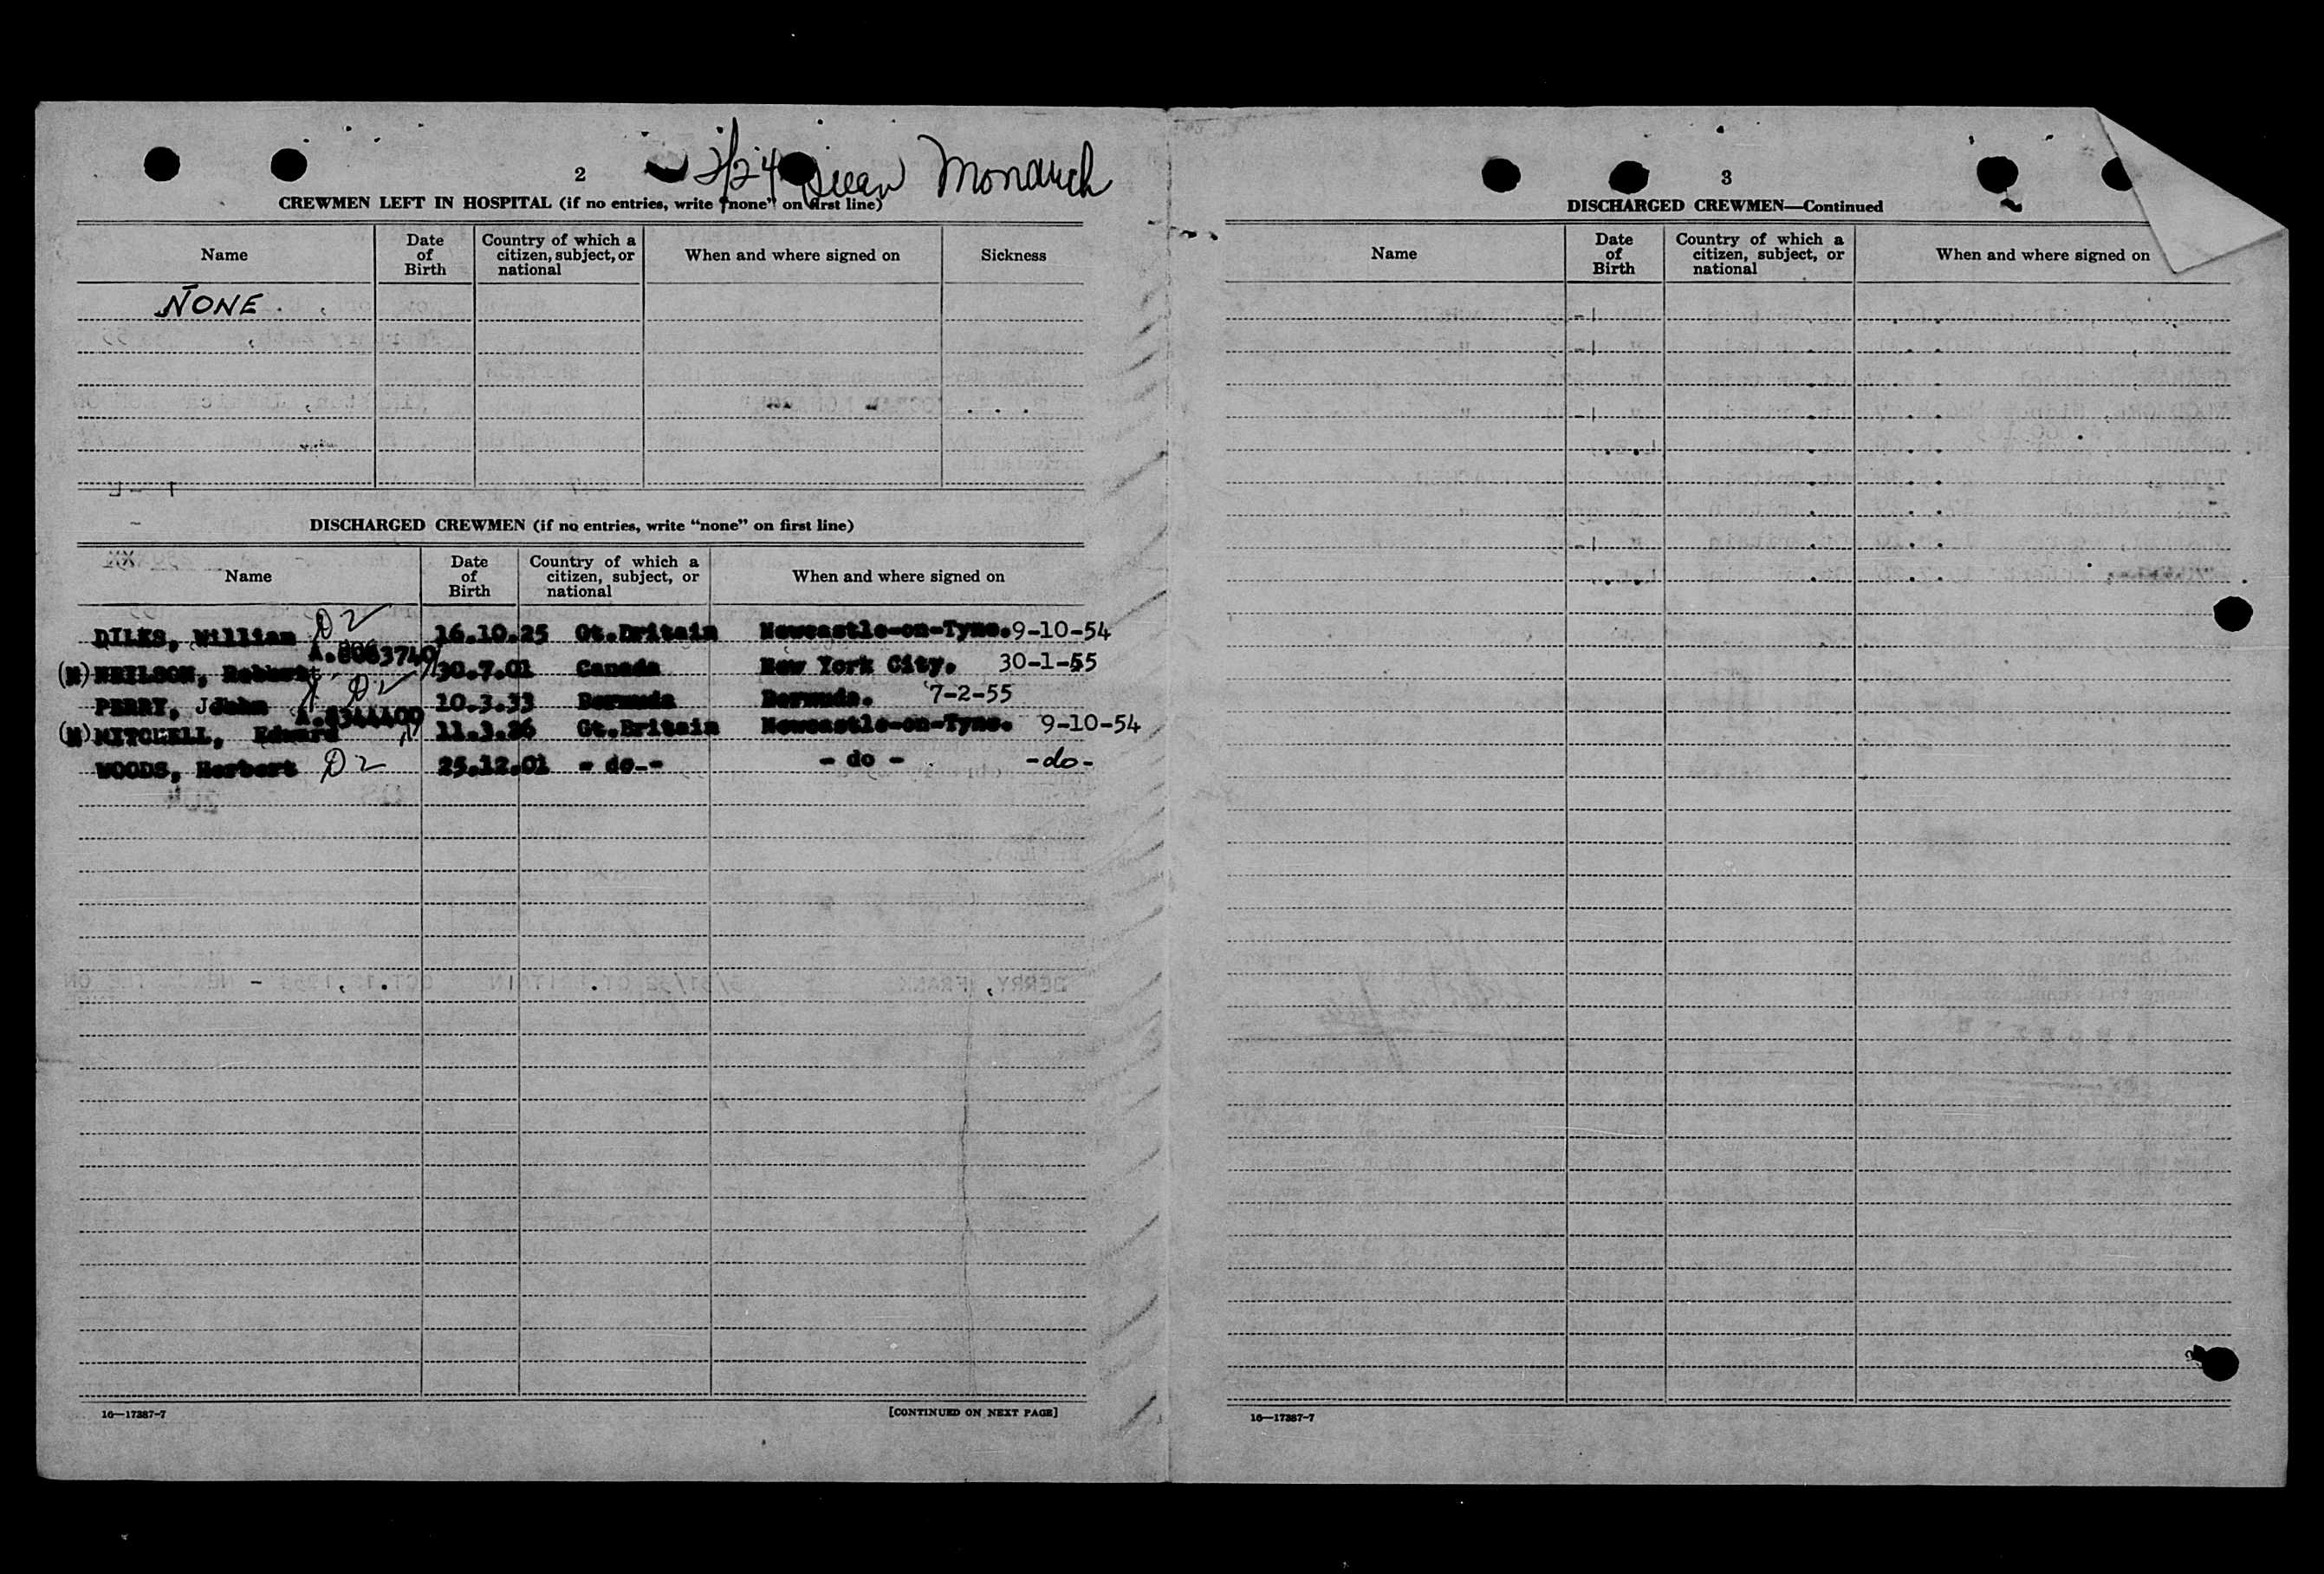 2
2/24 Ocean Monarch
CREWMEN LEFT IN HOSPITAL (if no entries, write "none" on first line)
Name
Date of Birth
Country of which a citizen, subject, or national
When and where signed on
Sickness
NONE
DISCHARGED CREWMEN (if no entries, write "none" on first line)
Name
Date of Birth
Country of which a citizen, subject, or national
When and where signed on
DILKS, William D2 16.10.25 Gt.Britain Newcastle-on-Tyne. 9-10-54
(N) NEILSON, Robert 30.7.01 Canada New York City. 30-1-55
PERRY, John D2 10.3.33 Bermuda Bermuda. 7-2-55
(N) MITCHELL, Edward 11.3.26 Gt.Britain Newcastle-on-Tyne. 9-10-54
WOODS, Herbert D2 25.12.01 - do - - do - -do-
16—17387-7
[CONTINUED ON NEXT PAGE]
3
DISCHARGED CREWMEN—Continued
Name
Date of Birth
Country of which a citizen, subject, or national
When and where signed on
16—17387-7